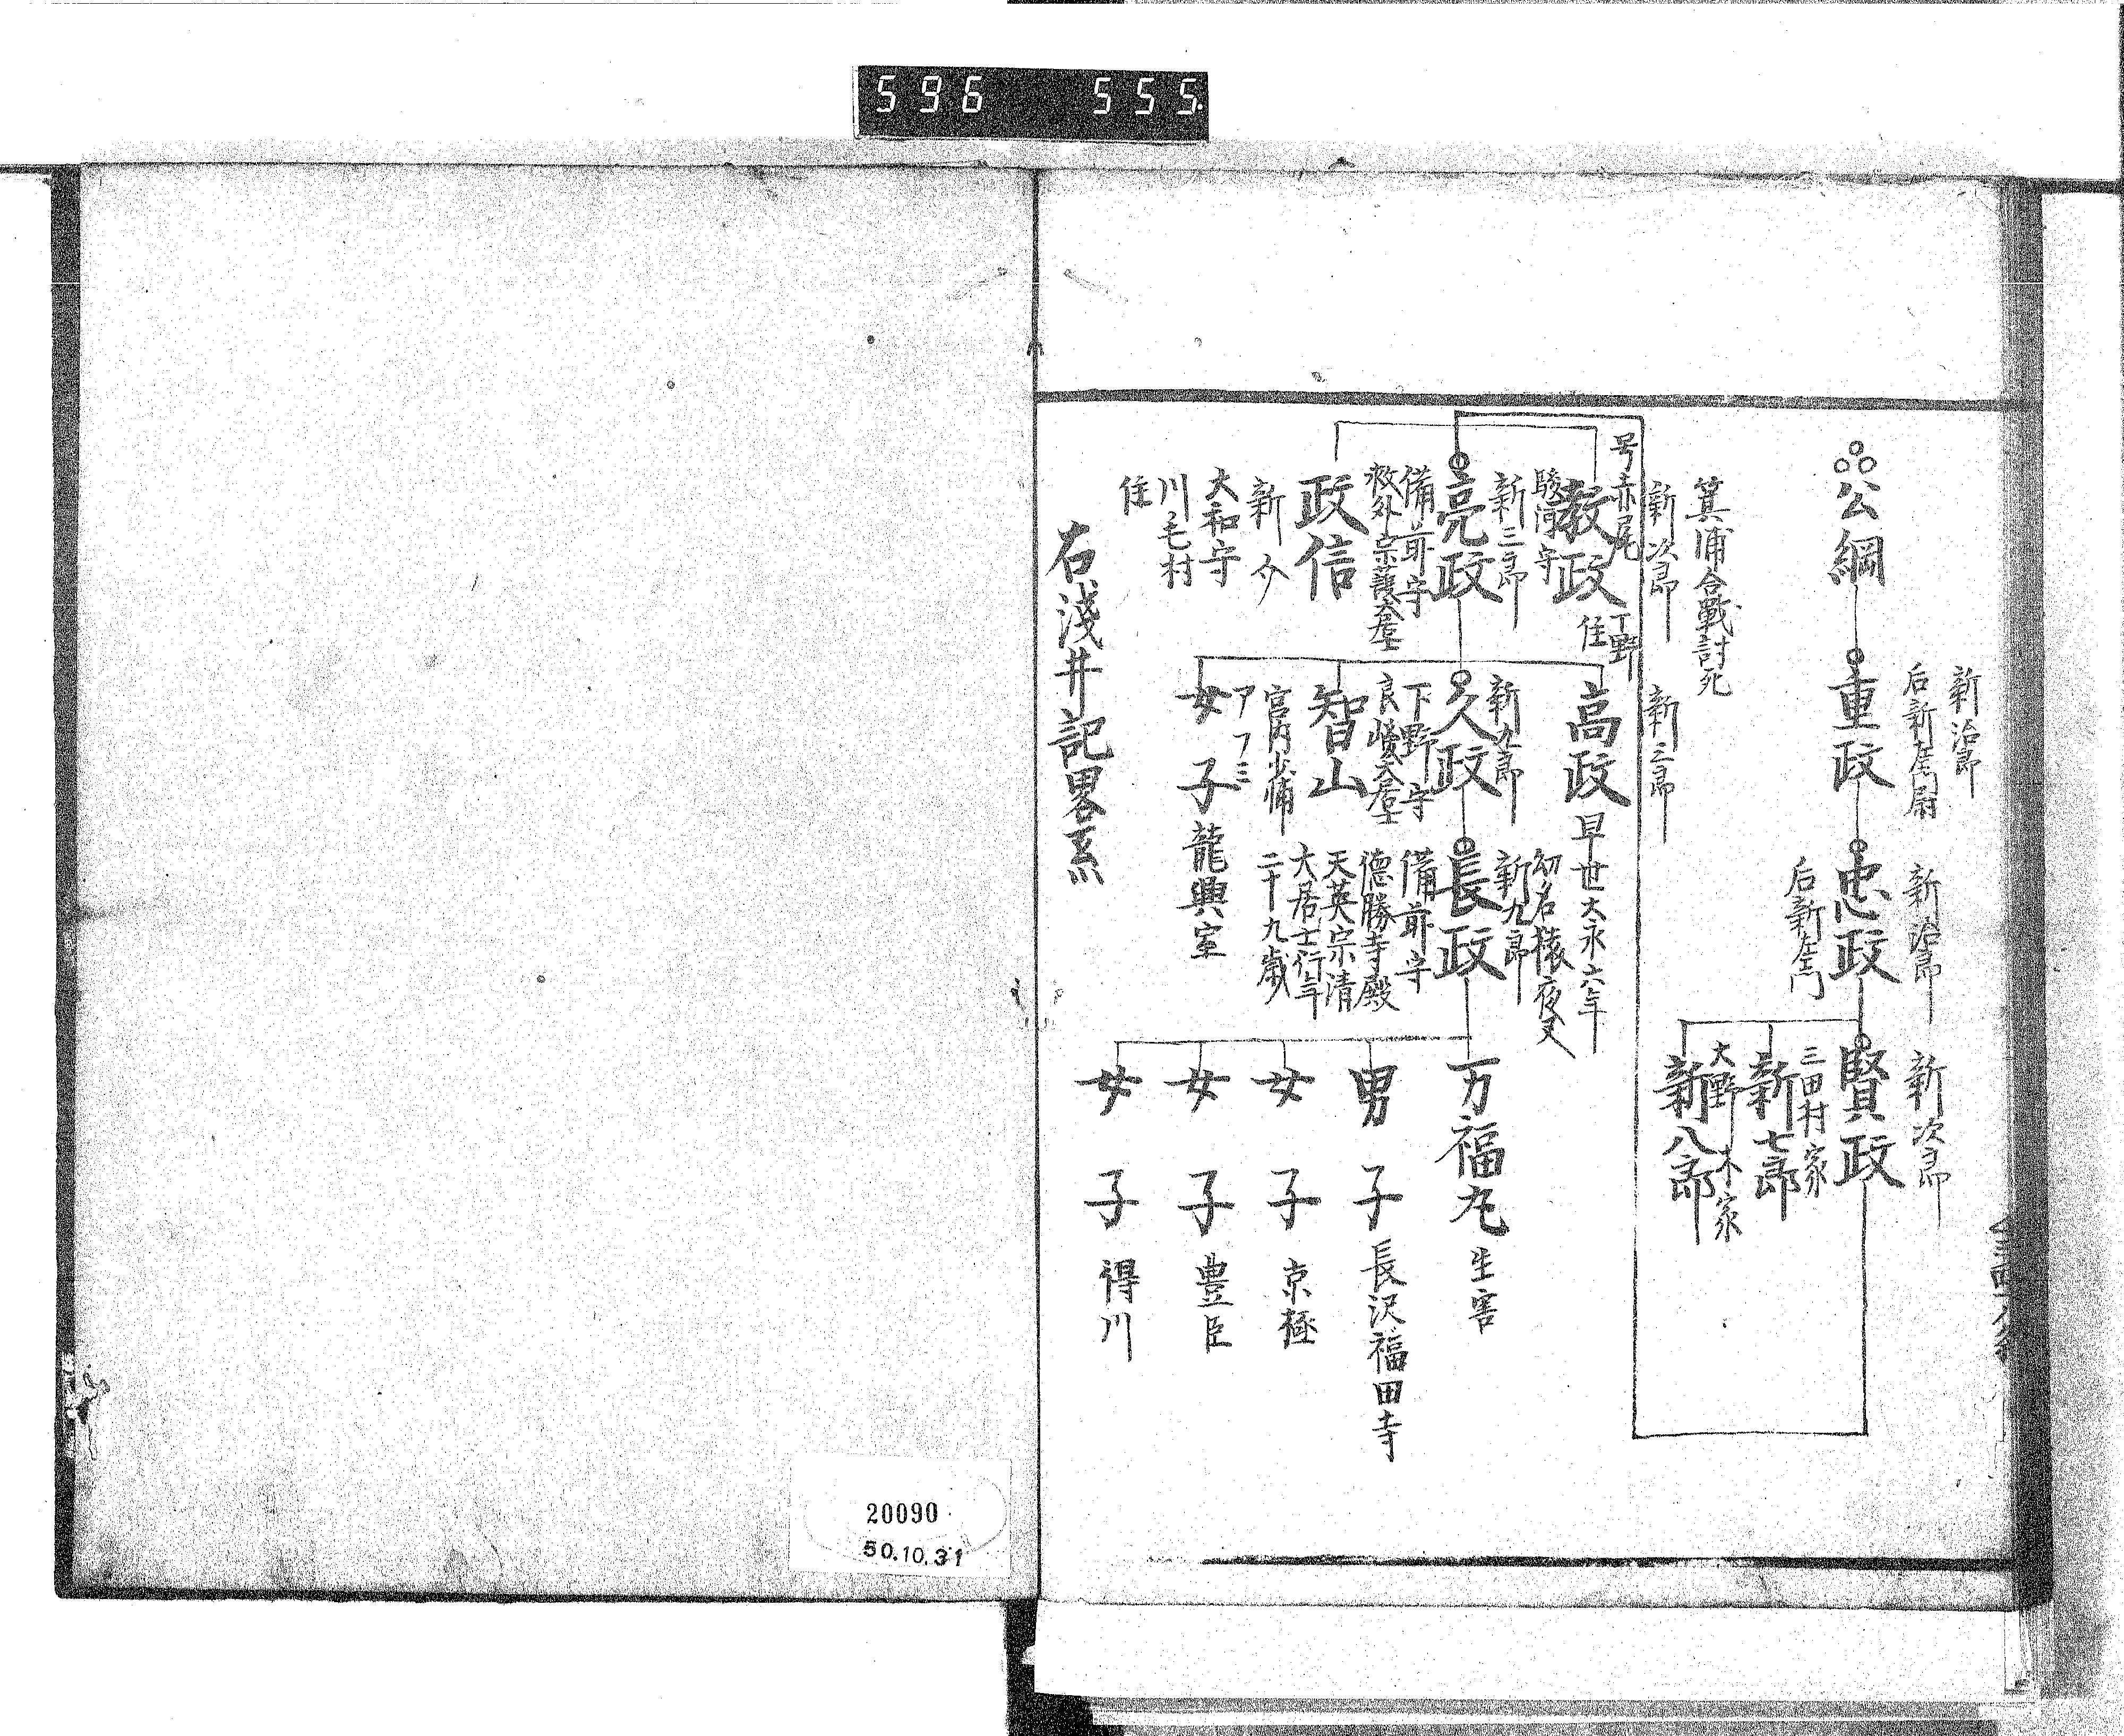 596 555
公綱
新治郎
后新左衛門尉
重政
新治郎
忠政
后新左エ門
新次郎
賢政
三田村家
新七郎
大野木家
新八郎
箕浦合戦討死
新次郎
新三郎
号赤尾
教政
丁野
住
駿河守
新三郎
亮政
備前守
救外宗護大居士
政信
新介
大和守
川毛村
住
高政
早世大永六年
新九郎
久政
下野守
良峻大居士
智山
宮内少輔
アフミ
女子
龍興室
幼名猿夜叉
新九郎
長政
備前守
徳勝寺殿
天英宗清
大居士行年
二十九歳
万福丸
生害
男子
長沢福田寺
女子
京極
女子
豊臣
女子
得川
右浅井記畧系
20090
50.10.31